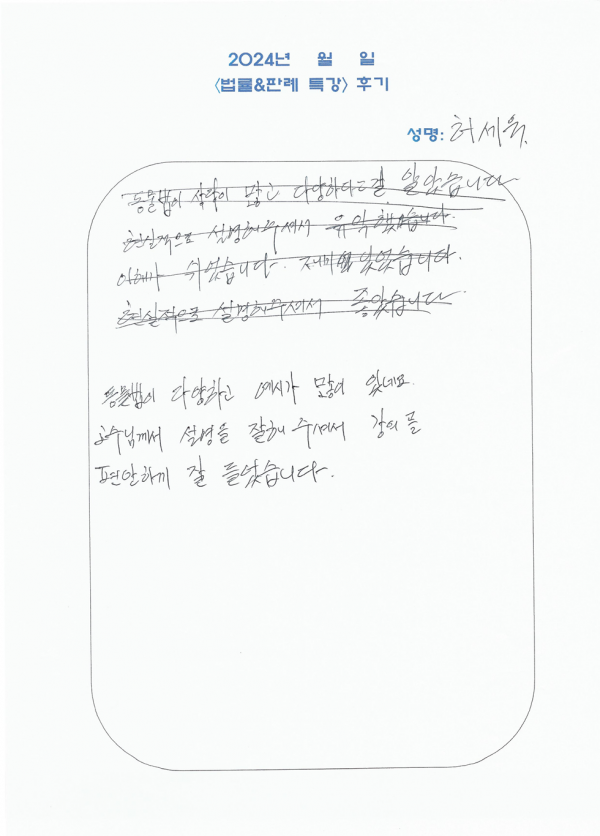 2024년 월 일
<법률&판례 특강> 후기
성명: 허세욱.
동물법이 많고 다양하다는걸 알았습니다
현실적으로 설명해주셔서 유익했습니다.
이해가 쉬웠습니다. 재미있었습니다.
현실적으로 설명해주셔서 좋았습니다.
동물법이 다양하고 예시가 많이 있네요.
교수님께서 설명을 잘해 주셔서 강의를
편안하게 잘 들었습니다.